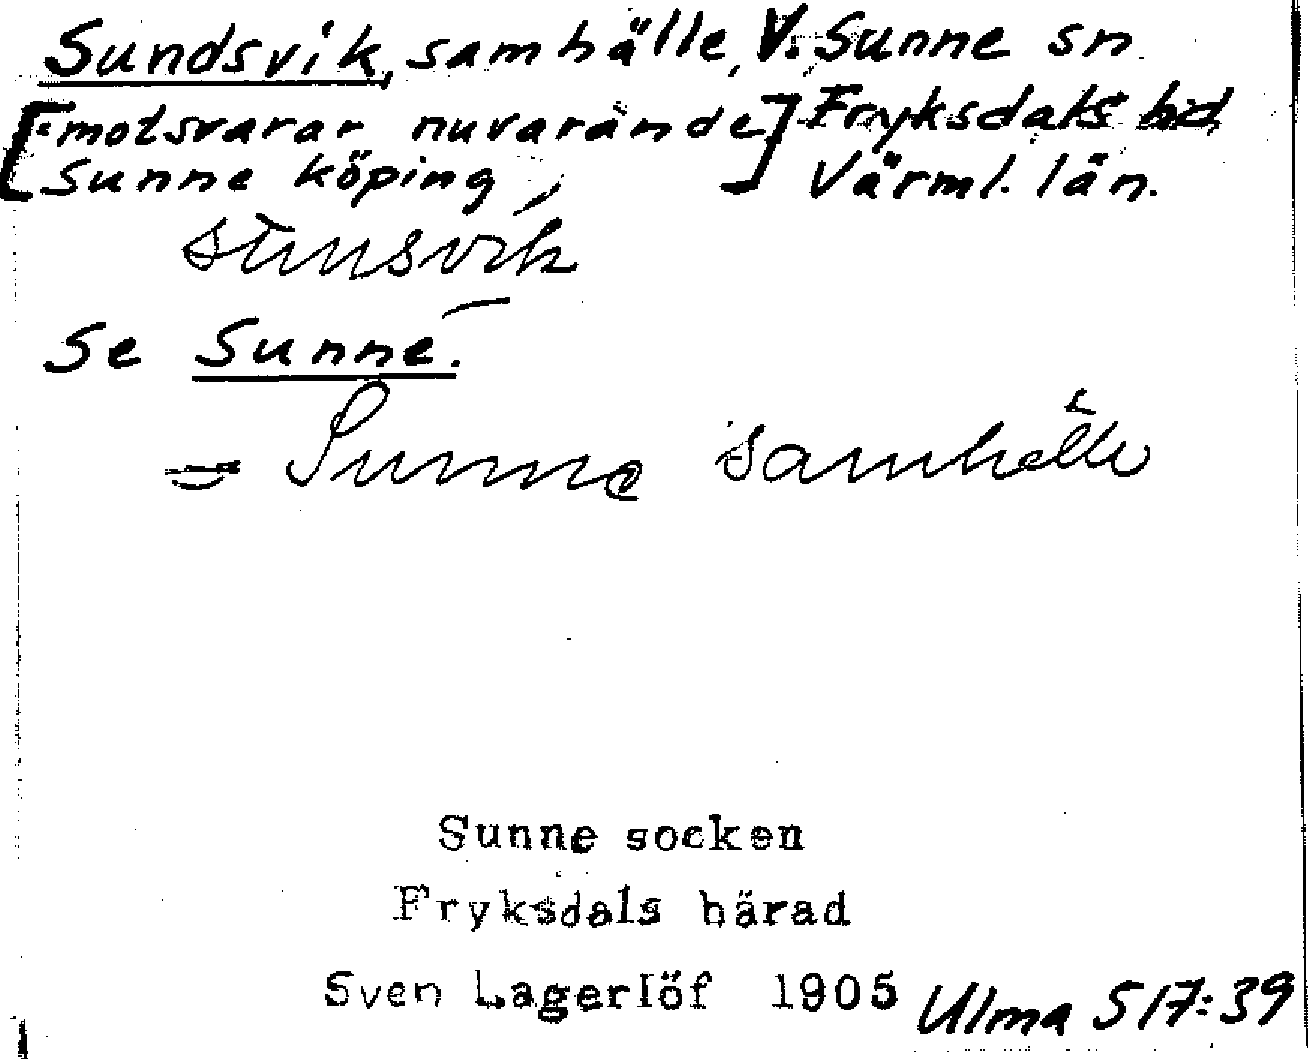 Sundsvik, samhälle, V. Sunne sn
[motsvarar nuvarande] Fryksdals hd
Sunne köping, Värml. län.
sunsvik
Se Sunne.
= Sunne samhälle
Sunne socken
Fryksdals härad
Sven Lagerlöf 1905 Ulma 517:39